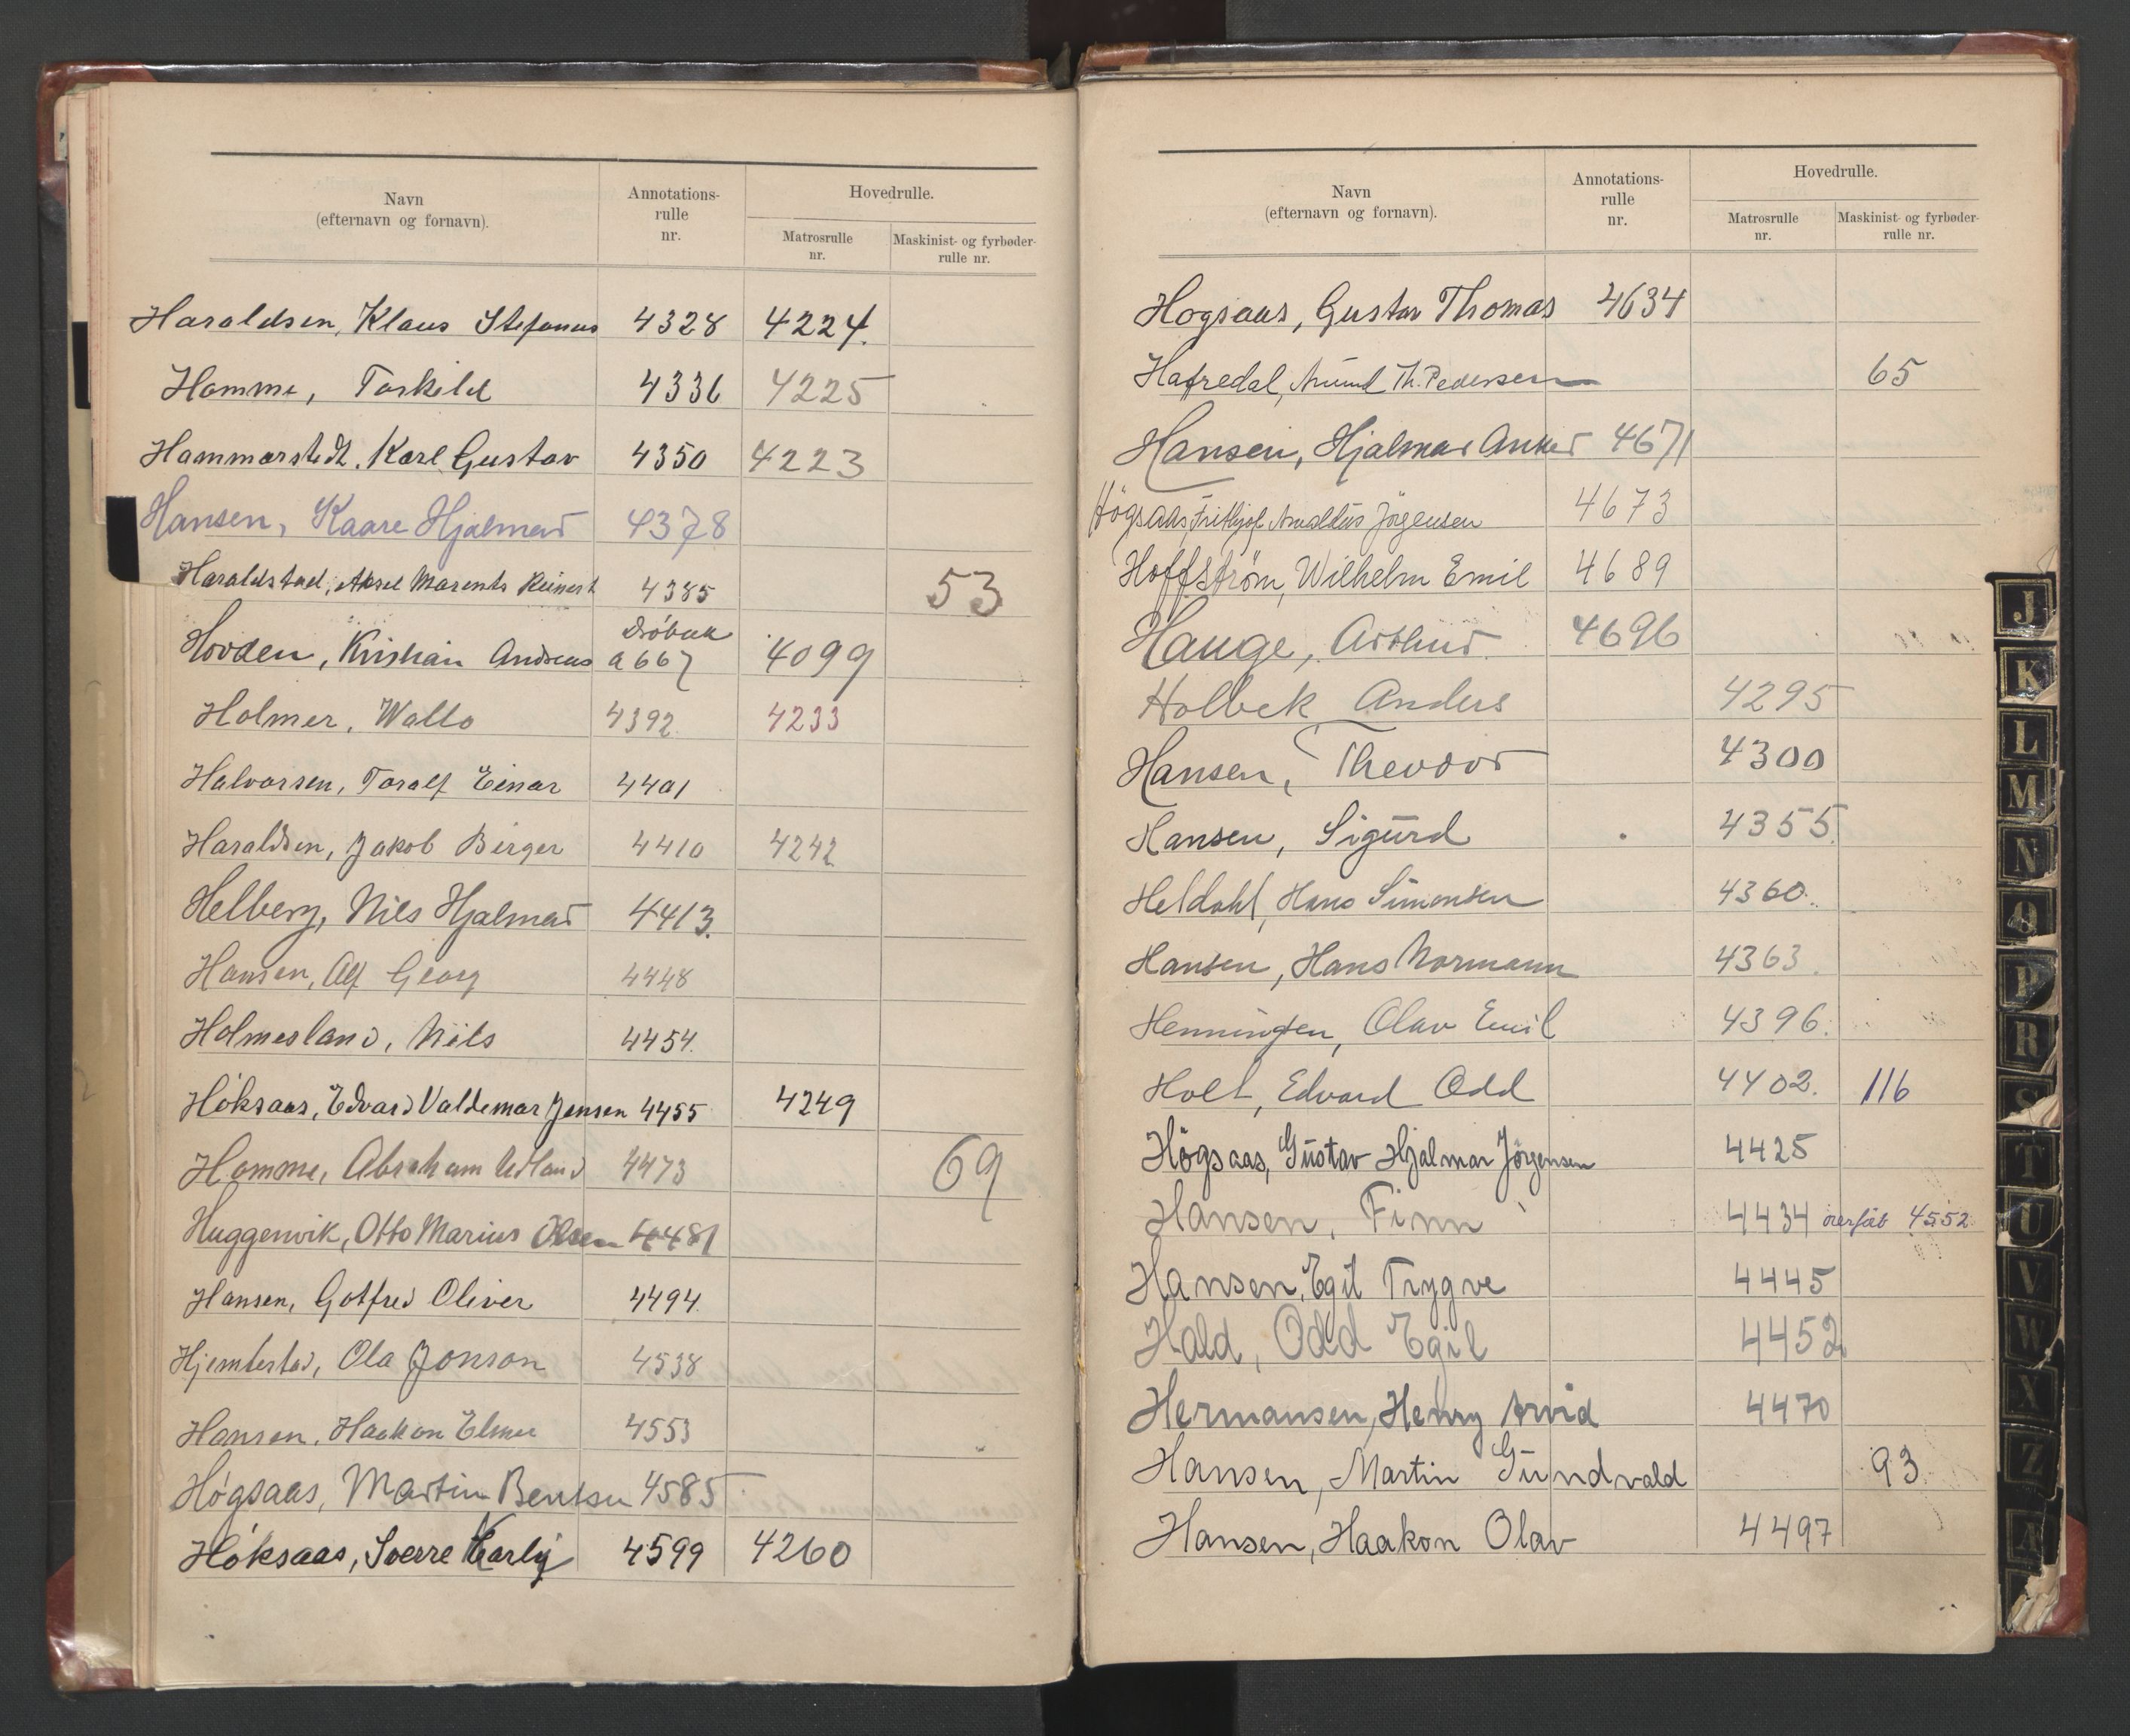 Navn
(efternavn og fornavn).
Annotations-
rulle
nr.
Hovedrulle.
Matrosrulle
nr.
Maskinist- og fyrbøder-
rulle nr.
Haraldsen, Klaus Stefanus 4328 4224.
Homme, Torkild 4336 4225
Hammarstedt, Karl Gustav 4350 4223
Hansen, Kaare Hjalmar 4378
Haraldstad, Aksel Marents Reinert 4385 53
Drøbak
Hovden, Kristian Andreas a 667 4099
Holmer, Wallo 4392 4233
Halvorsen, Toralf Einar 4401
Haraldsen, Jakob Birger 4410 4242
Helberg, Nils Hjalmar 4413.
Hansen, Alf Georg 4448
Holmesland, Nils 4454.
Höksaas, Edvard Valdemar Jensen 4455 4249
Homme, Abraham 4473 69
Huggenvik, Otto Marius Olsen 4481
Hansen, Gotfred Oliver 4494.
Hjemlestad, Ola Jonson 4538
Hansen, Haakon Elmer 4553
Høgsaas, Martin Bentsen 4585
Höksaas, Sverre Karly 4599 4260
Navn
(efternavn og fornavn).
Annotations-
rulle
nr.
Hovedrulle.
Matrosrulle
nr.
Maskinist- og fyrbøder-
rulle nr.
Hogsaas, Gustav Thomas 4634
Hafredal, Anund Th. Pedersen 65
Hansen, Hjalmar Anker 4671
Högsaas, Frithjof Jörgensen 4673
Hoffstrøm, Wilhelm Emil 4689
Hauge, Arthur 4696
Holbek, Anders 4295
Hansen, Theodor 4300
Hansen, Sigurd 4355.
Heldahl, Hans Simonsen 4360.
Hansen, Hans Normann 4363.
Henningsen, Olav Emil 4396.
Holt, Edvard Odd 4402. 116
Högsaas, Gustav Hjalmar Jörgensen 4425
Hansen, Finn 4434 overført 4552
Hansen, Egil Trygve 4445
Hald, Odd Egil 4452
Hermansen, Henry Arvid 4470
Hansen, Martin Gundvald 93
Hansen, Haakon Olav 4497
J
K
L
M
N
O
P
R
S
T
U
V
W
X
Z
A